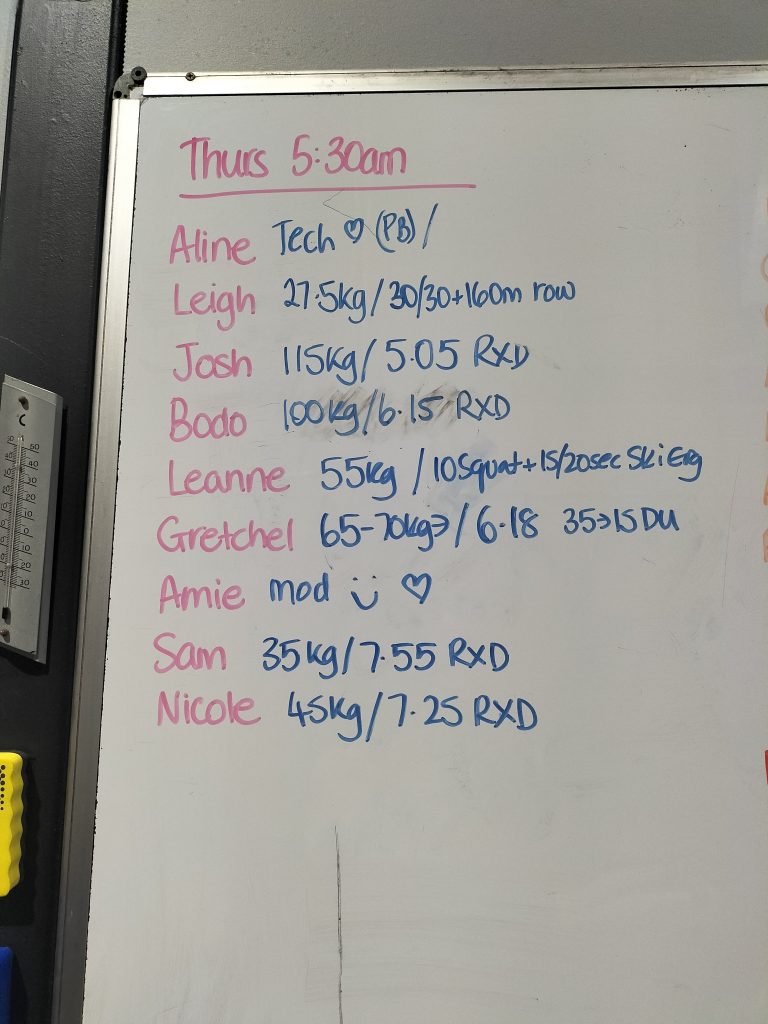 Thurs 5:30am
Aline Tech ♡ (PB) /
Leigh 27.5kg / 30/30+160m row
Josh 115kg / 5.05 RXD
Bodo 100kg / 6.15 RXD
Leanne 55kg / 10squat + 15/20sec Ski Erg
Gretchel 65-70kg / 6.18 35>15 DU
Amie mod ♡
Sam 35kg / 7.55 RXD
Nicole 45kg / 7.25 RXD